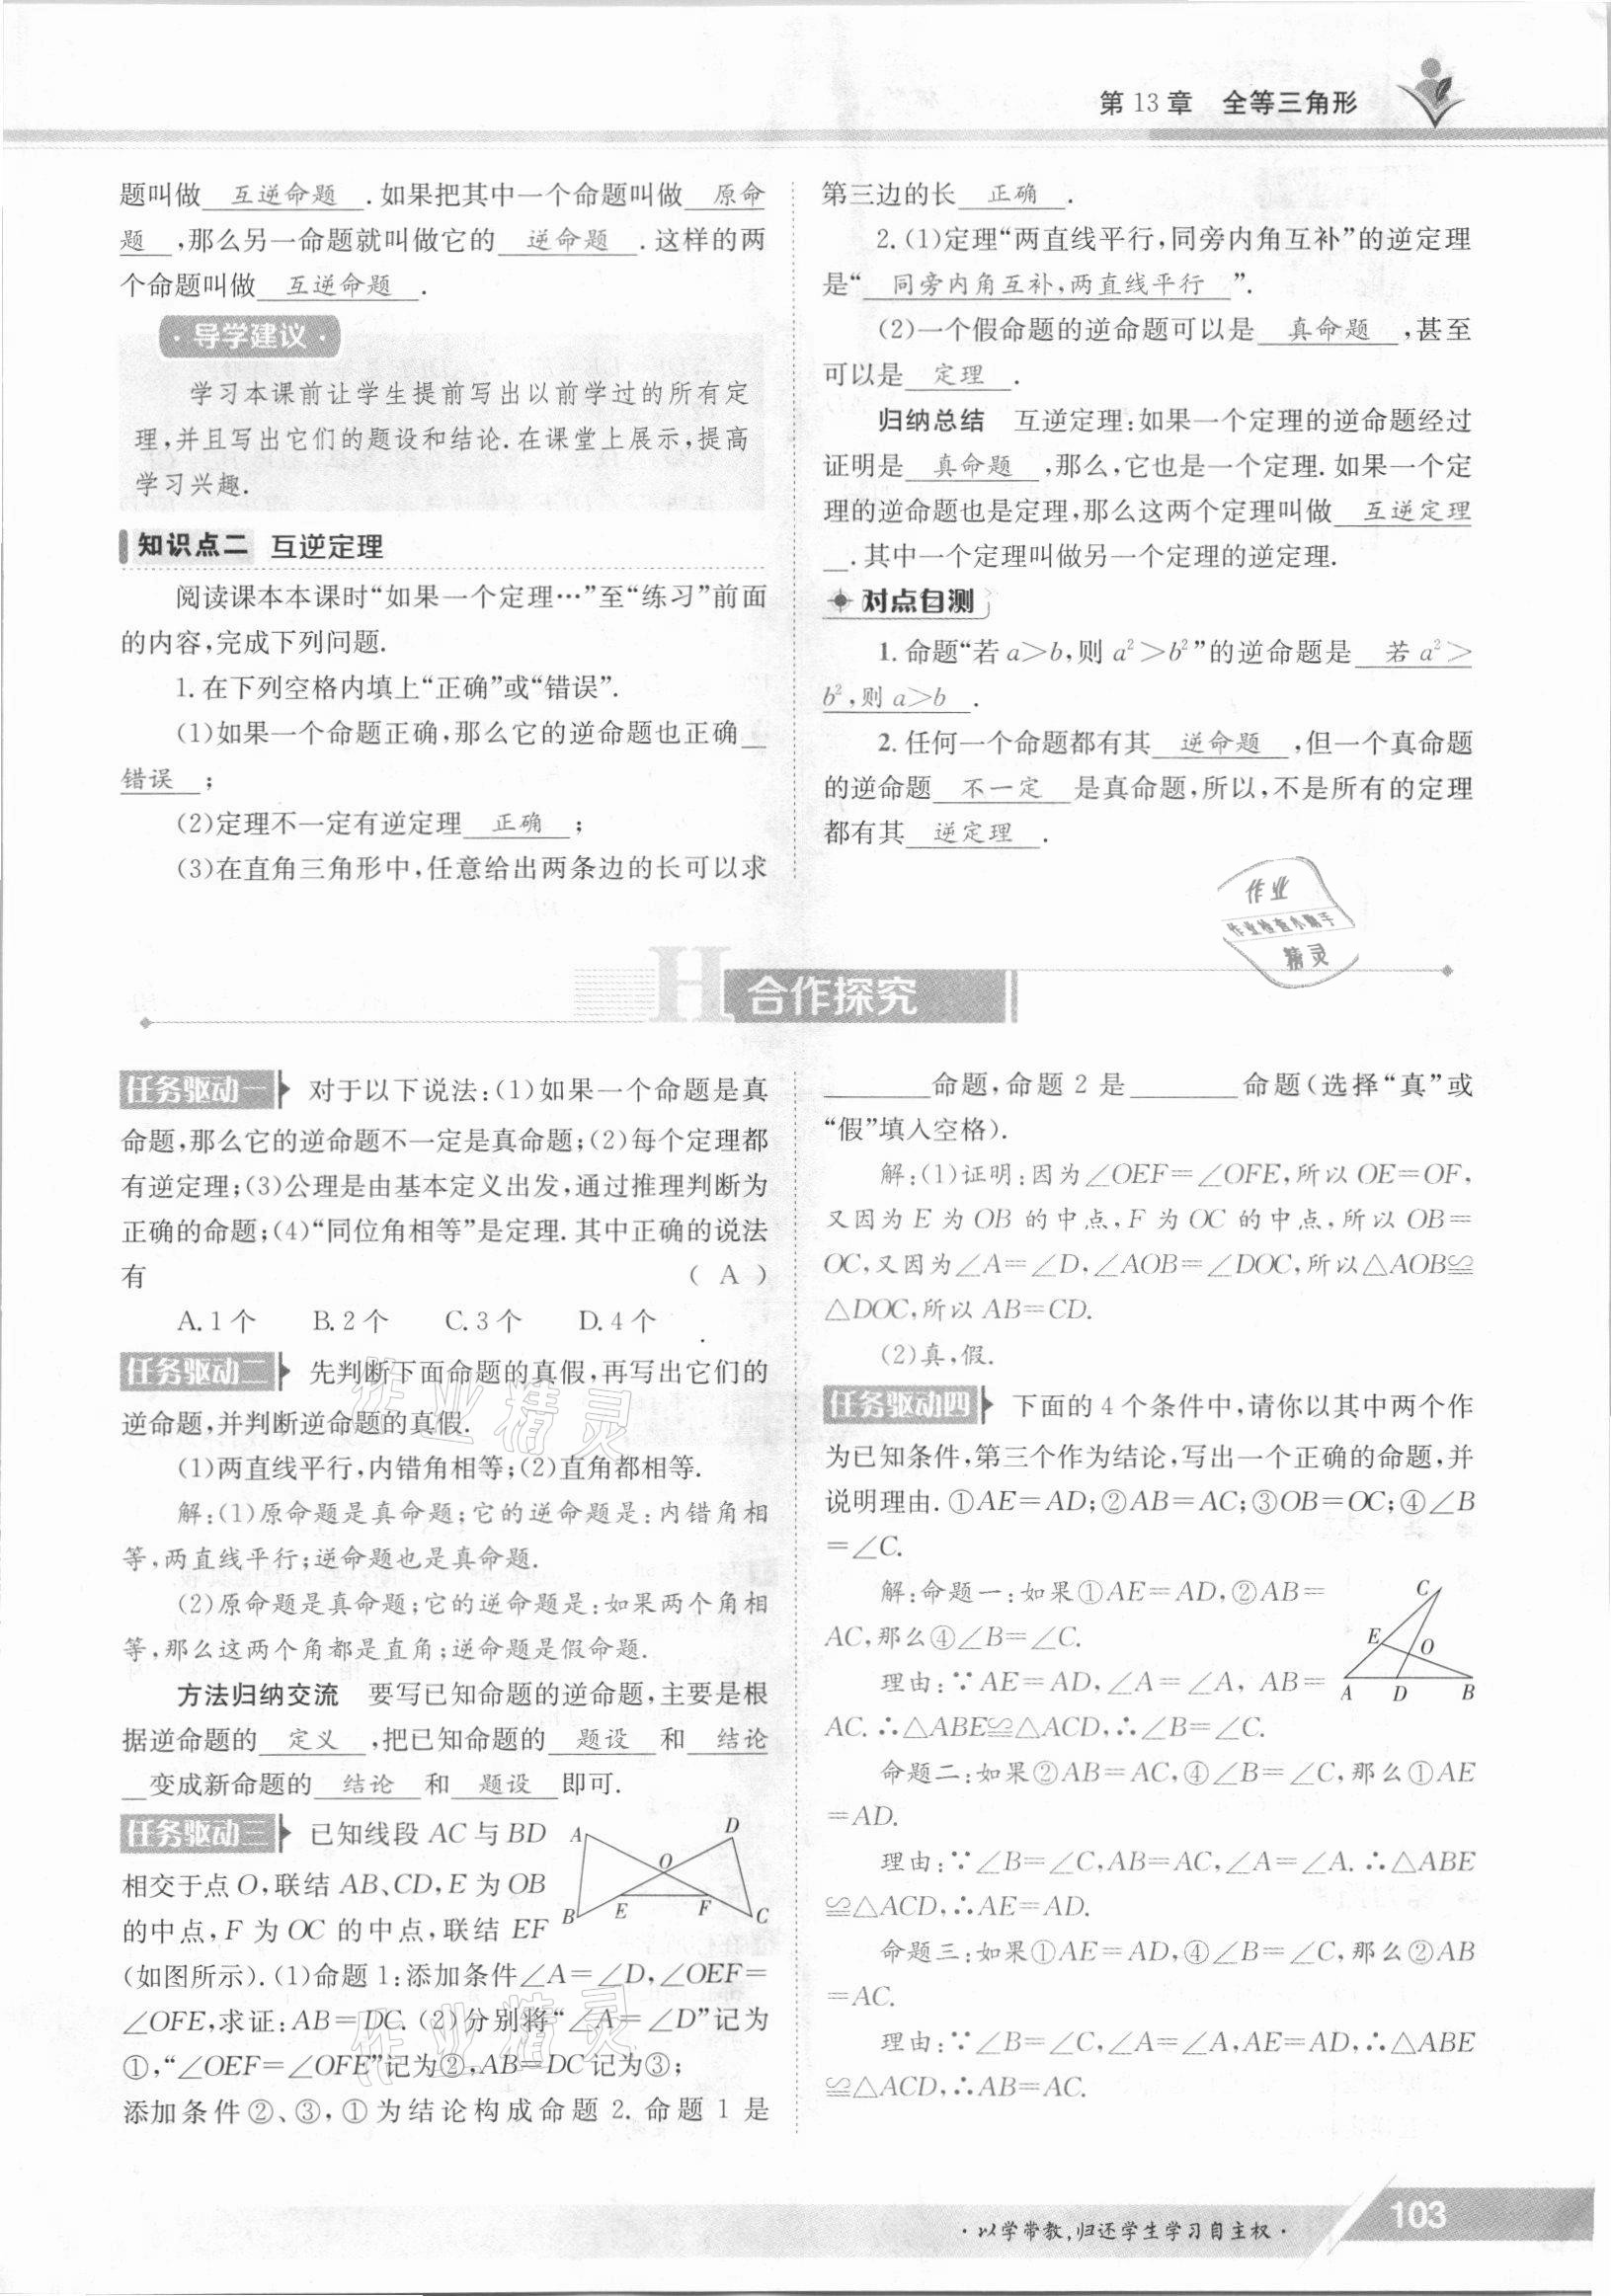 第 13 章 全等三角形
题叫做 互逆命题 .如果把其中一个命题叫做 原命
题 ,那么另一命题就叫做它的 逆命题 .这样的两
个命题叫做 互逆命题 .
·导学建议·
学习本课前让学生提前写出以前学过的所有定
理,并且写出它们的题设和结论.在课堂上展示,提高
学习兴趣.
知识点二 互逆定理
阅读课本本课时“如果一个定理…”至“练习”前面
的内容,完成下列问题.
1.在下列空格内填上“正确”或“错误”.
(1)如果一个命题正确,那么它的逆命题也正确
错误 ;
(2)定理不一定有逆定理 正确 ;
(3)在直角三角形中,任意给出两条边的长可以求
第三边的长 正确 .
2.(1)定理“两直线平行,同旁内角互补”的逆定理
是“ 同旁内角互补,两直线平行 ”.
(2)一个假命题的逆命题可以是 真命题 ,甚至
可以是 定理 .
归纳总结 互逆定理:如果一个定理的逆命题经过
证明是 真命题 ,那么,它也是一个定理.如果一个定
理的逆命题也是定理,那么这两个定理叫做 互逆定理
.其中一个定理叫做另一个定理的逆定理.
对点自测
1.命题“若 a>b,则 a²>b²”的逆命题是 若 a²>
b²,则 a>b .
2.任何一个命题都有其 逆命题 ,但一个真命题
的逆命题 不一定 是真命题,所以,不是所有的定理
都有其 逆定理 .
作业
作业检查小助手
精灵
H 合作探究
任务驱动一 对于以下说法:(1)如果一个命题是真
命题,那么它的逆命题不一定是真命题;(2)每个定理都
有逆定理;(3)公理是由基本定义出发,通过推理判断为
正确的命题;(4)“同位角相等”是定理.其中正确的说法
有 ( A )
A.1个 B.2个 C.3个 D.4个
任务驱动二 先判断下面命题的真假,再写出它们的
逆命题,并判断逆命题的真假.
(1)两直线平行,内错角相等;(2)直角都相等.
解:(1)原命题是真命题;它的逆命题是:内错角相
等,两直线平行;逆命题也是真命题.
(2)原命题是真命题;它的逆命题是:如果两个角相
等,那么这两个角都是直角;逆命题是假命题.
方法归纳交流 要写已知命题的逆命题,主要是根
据逆命题的 定义 ,把已知命题的 题设 和 结论
变成新命题的 结论 和 题设 即可.
任务驱动三 已知线段 AC 与 BD
相交于点 O,联结 AB、CD,E 为 OB
的中点,F 为 OC 的中点,联结 EF
(如图所示).(1)命题 1:添加条件∠A=∠D,∠OEF=
∠OFE,求证:AB=DC.(2)分别将“∠A=∠D”记为
①,“∠OEF=∠OFE”记为②,AB=DC记为③;
添加条件②、③,①为结论构成命题 2.命题 1 是
A D O B E F C
________命题,命题 2 是________命题(选择“真”或
“假”填入空格).
解:(1)证明:因为∠OEF=∠OFE,所以 OE=OF,
又因为 E 为 OB 的中点,F 为 OC 的中点,所以 OB=
OC,又因为∠A=∠D,∠AOB=∠DOC,所以△AOB≌
△DOC,所以 AB=CD.
(2)真,假.
任务驱动四 下面的 4 个条件中,请你以其中两个作
为已知条件,第三个作为结论,写出一个正确的命题,并
说明理由.①AE=AD;②AB=AC;③OB=OC;④∠B
=∠C.
解:命题一:如果①AE=AD,②AB=
AC,那么④∠B=∠C.
理由:∵AE=AD,∠A=∠A, AB=
AC.∴△ABE≌△ACD,∴∠B=∠C.
C E O A D B
命题二:如果②AB=AC,④∠B=∠C,那么①AE
=AD.
理由:∵∠B=∠C,AB=AC,∠A=∠A.∴△ABE
≌△ACD,∴AE=AD.
命题三:如果①AE=AD,④∠B=∠C,那么②AB
=AC.
理由:∵∠B=∠C,∠A=∠A,AE=AD,∴△ABE
≌△ACD,∴AB=AC.
作业精灵
作业精灵
·以学带教,归还学生学习自主权·
103